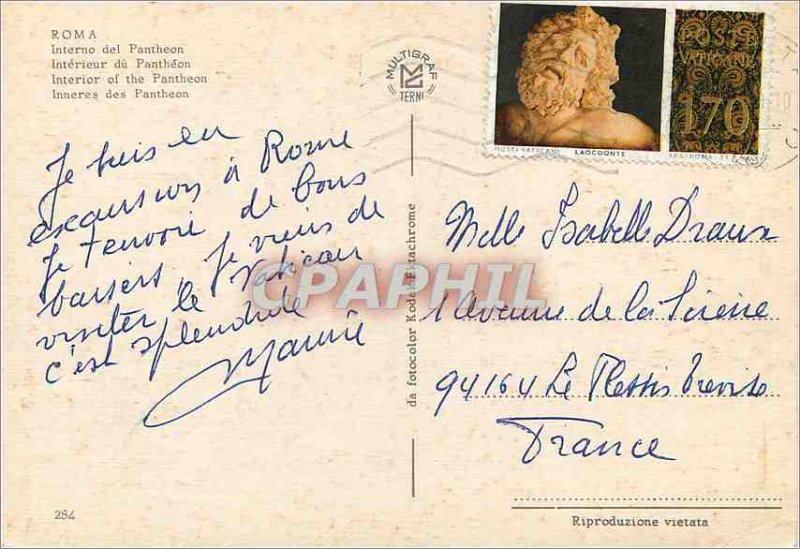 ROMA
Interno del Pantheon
Intérieur dù Panthéon
Interior of the Pantheon
Inneres des Pantheon
MULTIGRAF
TERNI
POSTE
VATICANE
170
MUSEI VATICANI LAOCOONTE
Je suis en
excursions à Rome
Je t'envoie de bons
baisers, Je viens de
visiter le Vatican
c'est splendide
Mamie
CPAPHIL
da fotocolor Kodak Ektachrome
Melle Isabelle Draux
1 Avenue de la Sirène
94164 Le Plessis Trevise
France
284
Riproduzione vietata